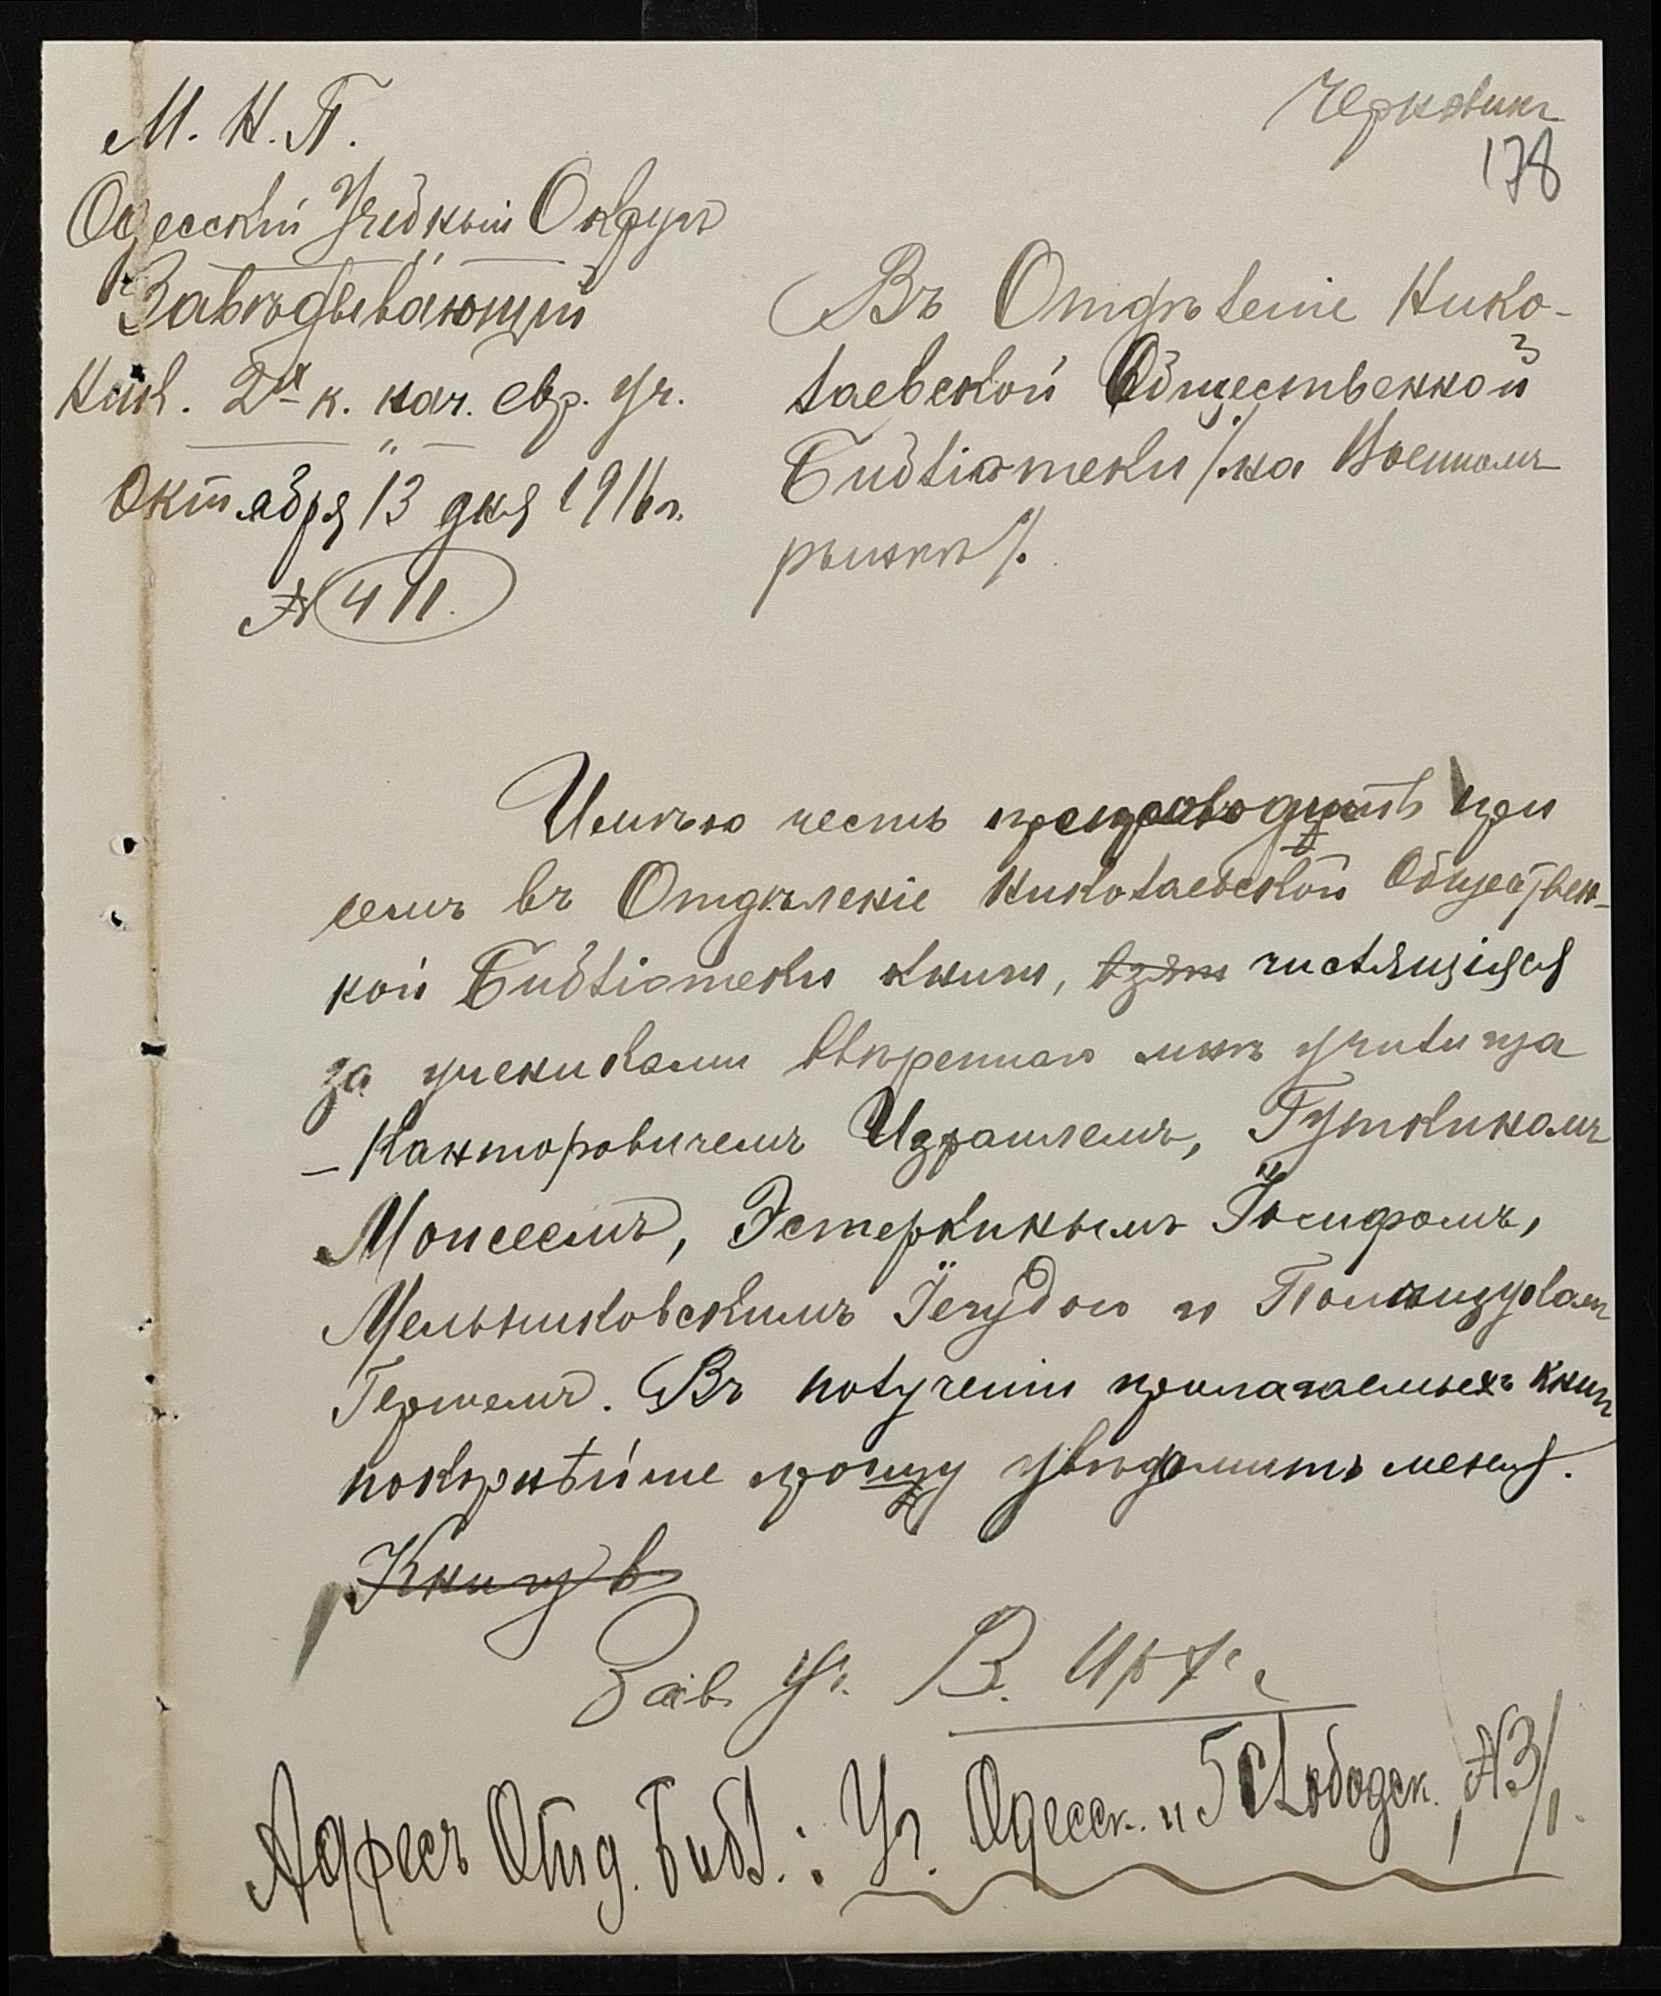 Черновикъ
178
М. Н. П.
Одесскій Учебный Округъ
Завѣдывающій
Ник. 2х к. нач. евр. уч.
Октября 13 дня 1916 г.
№ 411.
Въ Отдѣленіе Нико-
лаевской Общественной
Библіотеки /на Военномъ
рынкѣ/.
Имѣю честь препроводить при
семъ въ Отдѣленіе Николаевской Обществен-
ной Библіотеки книги, взят числящіяся
за учениками ввѣреннаго мнѣ училища
– Канторовичемъ Израилемъ, Гуткинымъ
Моисеемъ, Эстеркинымъ Іосифомъ,
Мельниковскимъ Іегудою и
Гершемъ. Въ полученіи прилагаемыхъ книг
покорнѣйше прошу увѣдомить меня.
Книгу в
Зав. уч. В.
Адресъ Отд. Библ.: Уг. Одесск. и 5 Слободск. №3/1.